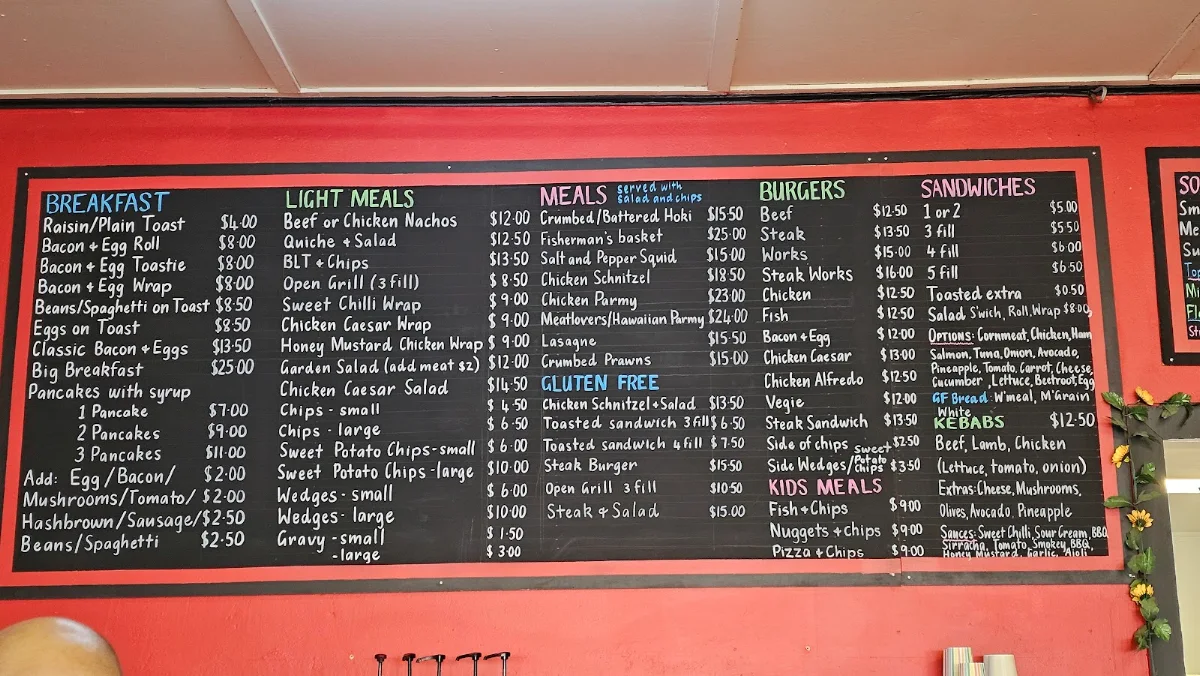 BREAKFAST
Raisin/Plain Toast $4.00
Bacon + Egg Roll $8.00
Bacon + Egg Toastie $8.00
Bacon + Egg Wrap $8.00
Beans/Spaghetti on Toast $8.50
Eggs on Toast $8.50
Classic Bacon + Eggs $13.50
Big Breakfast $25.00
Pancakes with syrup
1 Pancake $7.00
2 Pancakes $9.00
3 Pancakes $11.00
Add: Egg/Bacon/ $2.00
Mushrooms/Tomato/ $2.00
Hashbrown/Sausage/ $2.50
Beans/Spaghetti $2.50
LIGHT MEALS
Beef or Chicken Nachos $12.00
Quiche + Salad $12.50
BLT + Chips $13.50
Open Grill (3 fill) $8.50
Sweet Chilli Wrap $9.00
Chicken Caesar Wrap $9.00
Honey Mustard Chicken Wrap $9.00
Garden Salad (add meat $2) $12.00
Chicken Caesar Salad $14.50
Chips - small $4.50
Chips - large $6.50
Sweet Potato Chips - small $6.00
Sweet Potato Chips - large $10.00
Wedges - small $6.00
Wedges - large $10.00
Gravy - small $1.50
- large $3.00
MEALS served with
salad and chips
Crumbed/Battered Hoki $15.50
Fisherman's basket $25.00
Salt and Pepper Squid $15.00
Chicken Schnitzel $18.50
Chicken Parmy $23.00
Meatlovers/Hawaiian Parmy $24.00
Lasagne $15.50
Crumbed Prawns $15.00
GLUTEN FREE
Chicken Schnitzel + Salad $13.50
Toasted sandwich 3 fill $6.50
Toasted sandwich 4 fill $7.50
Steak Burger $15.50
Open Grill 3 fill $10.50
Steak + Salad $15.00
BURGERS
Beef $12.50
Steak $13.50
Works $15.00
Steak Works $16.00
Chicken $12.50
Fish $12.50
Bacon + Egg $12.00
Chicken Caesar $13.00
Chicken Alfredo $12.50
Vegie $12.00
Steak Sandwich $13.50
Side of chips $2.50
Side Wedges/Sweet Potato Chips $3.50
KIDS MEALS
Fish + Chips $9.00
Nuggets + chips $9.00
Pizza + Chips $9.00
SANDWICHES
1 or 2 $5.00
3 fill $5.50
4 fill $6.00
5 fill $6.50
Toasted extra $0.50
Salad S'wich, Roll, Wrap $8.00,
OPTIONS: Cornmeat, Chicken, Ham
Salmon, Tuna, Onion, Avocado,
Pineapple, Tomato, Carrot, Cheese,
Cucumber, Lettuce, Beetroot, Egg
GF Bread: W'meal, M'Grain
White
KEBABS $12.50
Beef, Lamb, Chicken
(Lettuce, tomato, onion)
Extras: Cheese, Mushrooms,
Olives, Avocado, Pineapple
Sauces: Sweet Chilli, Sour Cream, BBQ
Sirracha, Tomato, Smokey BBQ,
Honey Mustard, Garlic, Aioli